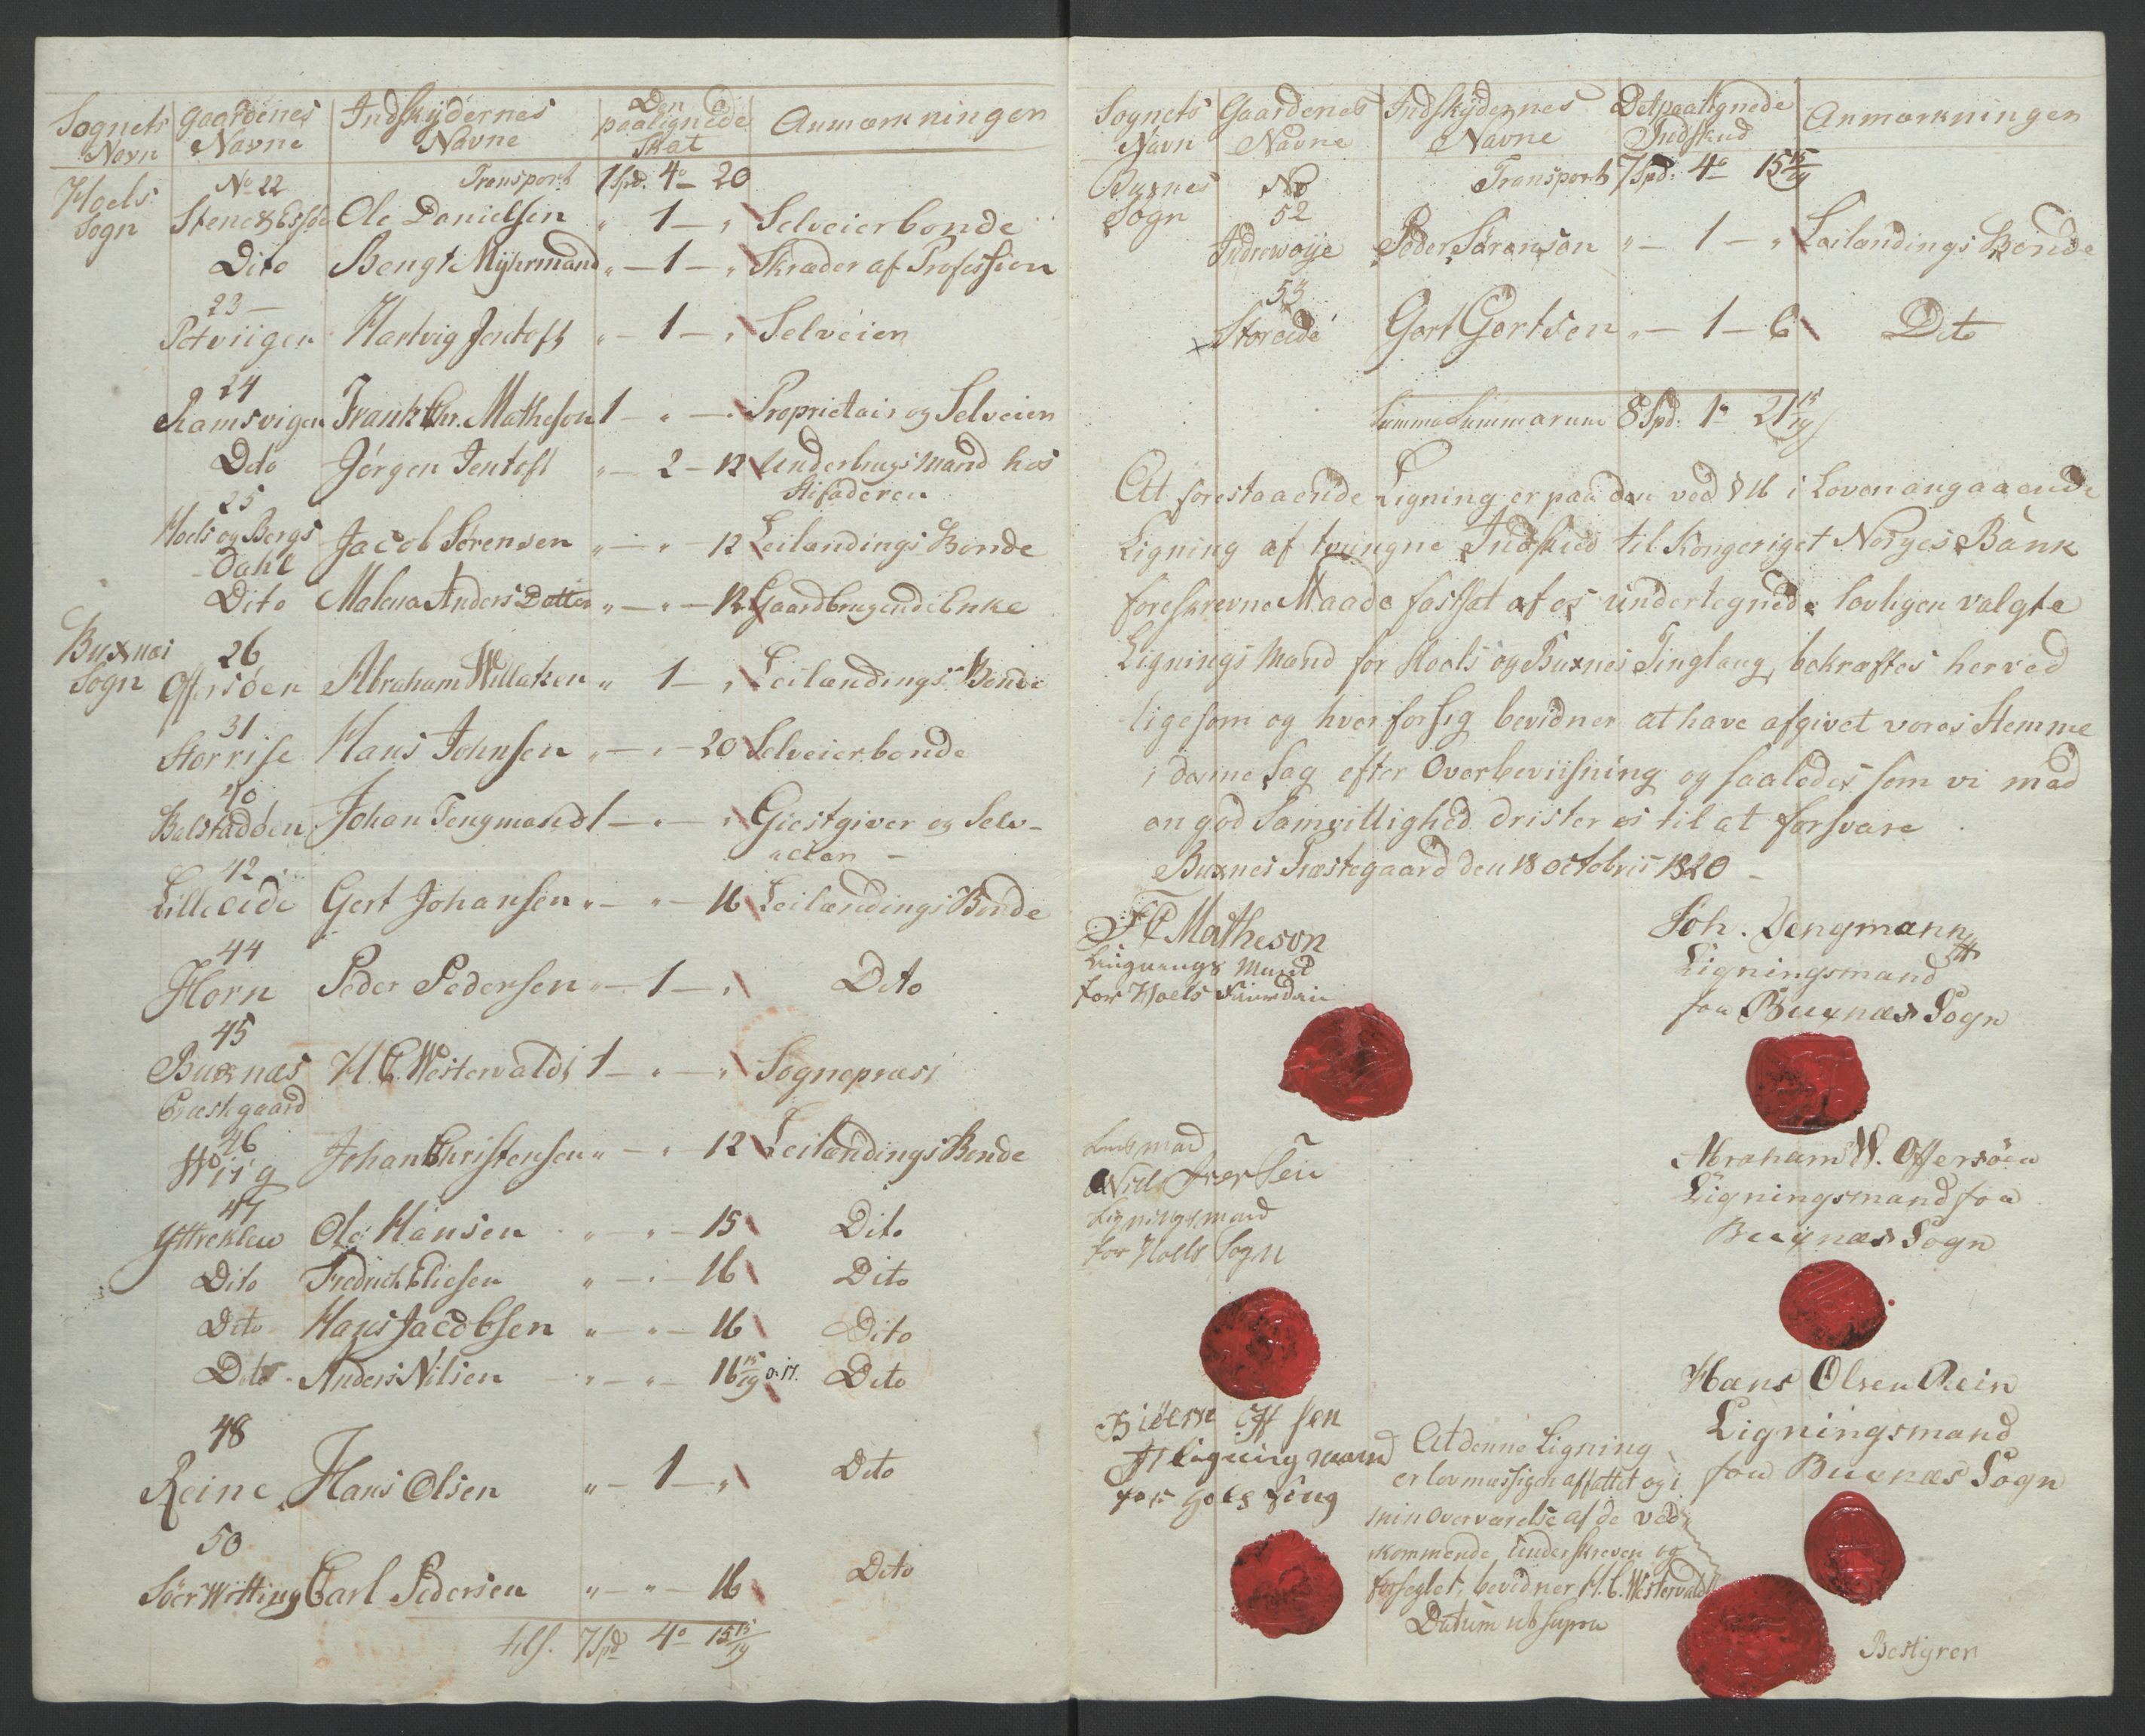 Sognets Navn | Gaardenes Navne | Indskydernes Navne | Den paalignede Skat | Anmærkninger
Hols Sogn | No 22 | Transport | 1 Spd. 4o 20
Ole Danielsen | " 1 — " | Selveierbonde
Dito | Bengt Myhrmand | " — 1 — " | Skræder af Profession
23 —
Petviigen | Hartvig Jentoft | " — 1 — " | Selveier
24
Ramsvigen | Frank Chr. Matheson | 1 — " — " | Proprietair og Selveier
Dito | Jørgen Jentoft | " — 2 — 12 | Underbrugs Mand hos Stifaderen
25
Hoels og Bergs Dahl | Jacob Sørensen | " — " — 12 | Leilændings Bonde
Dito | Malena Anders Datter | " — " — 12 | Gaardbrugende Enke
Buxnæs Sogn | 26
Offersøen | Abraham Willatzen | " 1 — " | Leilændings Bonde
31
Storrise | Hans Johnsen | " — " — 20 | Selveierbonde
40
Balstadøen | Johan Tengmand | 1 — " — " | Giestgiver og Selv-
eier —
42
Lilleeide | Gert Johansen | " — " — 16 | Leilændings Bonde
44
Horn | Peder Pedersen | " — 1 — " | Dito
45
Buxnæs Præstegaard | H. C. Westervaldt | 1 — " — " | Sognepræst
46
Johan Christensen | " — " — 12 | Leilændings Bonde
47
Ole Hansen | " " — 15 | Dito
Dito | Fredrich Eliesen | " — " — 16 | Dito
Dito | Hans Jacobsen | " — " — 16 | Dito
Dito | Anders Nilsen | " — " — 16 15/19 | Dito
48
Reine | Hans Olsen | " — 1 — " | Dito
50
Sør Witting | Carl Pedersen | " — " — 16 | Dito
7 Spd 4o 15 15/19
Sognets Navn | Gaardenes Navne | Indskydernes Navne | Det paalignede Indskud | Anmærkninger
Buxnes Sogn | No 52 | Transport | 7 Spd. 4o 15 15/19
Peder Sørensen | " — 1 — " | Leilændings Bonde
53
Storeide | Gert Gertsen | " — 1 — 6 | Dito
Summa Summarum 8 Spd: 1o 21 15/19
At forestaaende Ligning er paa den ved § 16 i Loven angaaende
Ligning af tvungne Indskud til Kongeriget Norges Bank
foreskrevne Maade fastsat af os undertegnede lovligen valgte
Lignings Mænd for Hoels og Buxnes Tinglaug, bekræftes herved
ligesom og hver for sig bevidner at have afgivet vores Stemme
i denne Sag efter Overbeviisning og saaledes som vi med
en god Samvittighed drister os til at forsvare
Buxnes Præstegaard den 18 octobris 1820 —
F C Matheson
Lignings Mand
for Hoels
Joh. Tengmann
Ligningsmand
for Buxnæs Sogn
Ligningsmand
for Hoels Sogn
Abraham W. Offersøen
Ligningsmand for
Buxnæs Sogn
Hans Olsen Rein
Ligningsmand
for Buxnæs Sogn
ligning mand
At denne Ligning
er lovmæssigen affattet og i
min Overværelse af de ved-
kommende underskreven og
forseglet, bevidner H. C. Westervaldt
Datum ut supra
Bestyrer